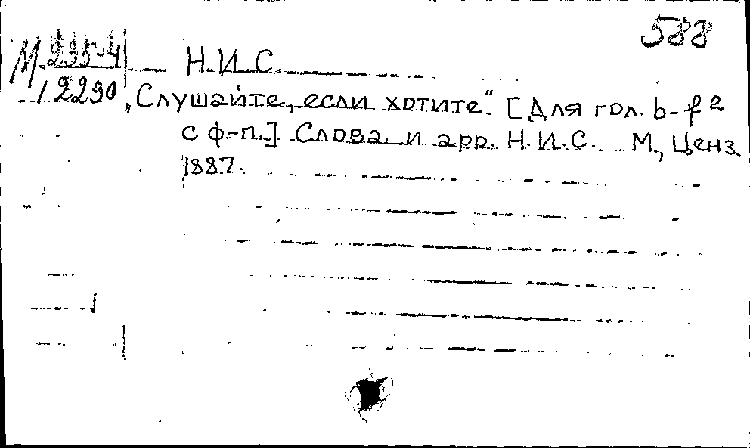 588
М. 235-4 Н.И.С.
12290 „Слушайте, если хотите“. [Для гол. b-f²
с ф-п.] Слова и арр. Н.И.С. М., Ценз.
1887.